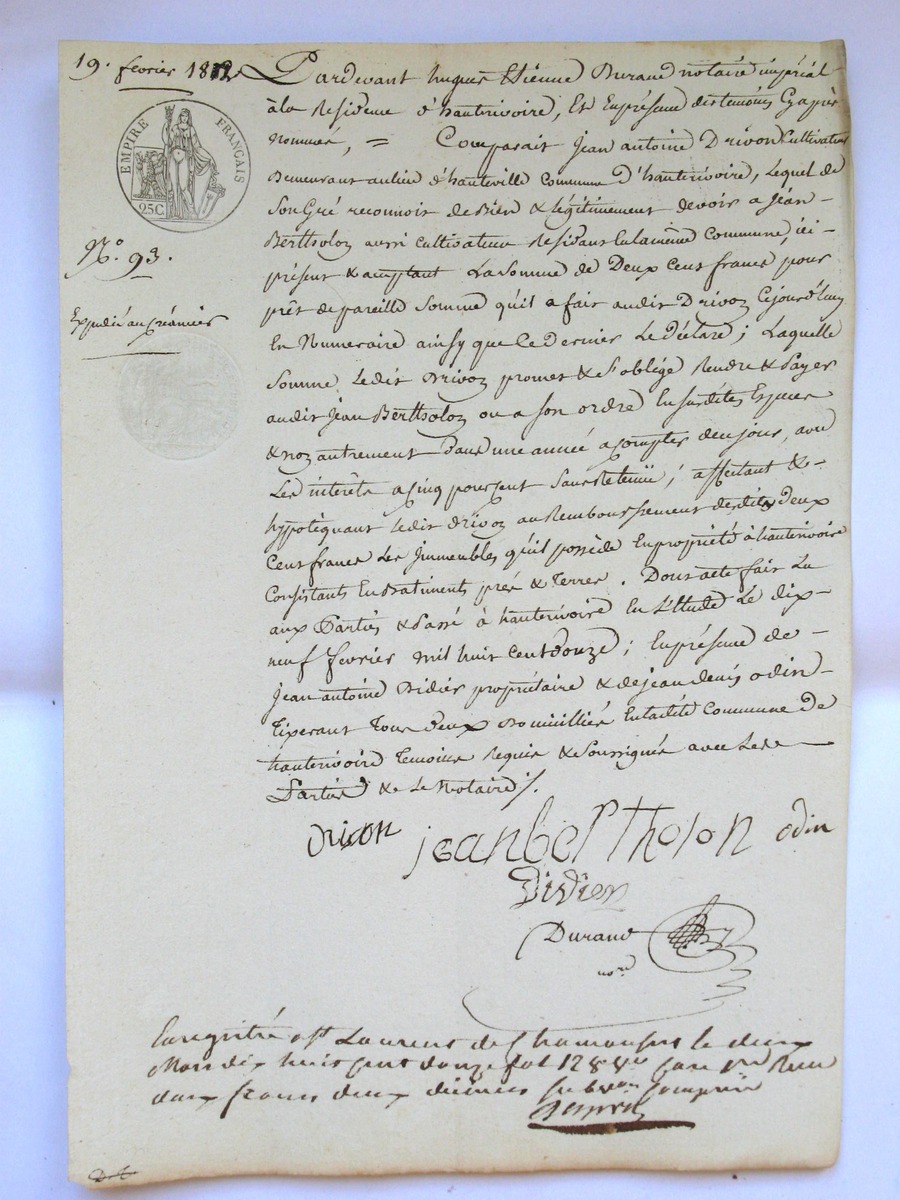 19. fevrier 1812
EMPIRE FRANÇAIS
25 C.
N.º 93.
Expédié au créancier
Pardevant hugues Etienne Durand notaire impérial
à la Residence d'hauterivoire, Et En présence des temoins Cy après
nommés, = Comparait Jean antoine Drivon Cultivateur
Demeurant au lieu d'hauteville Commune D'hauterivoire, Lequel de
Son Gré reconnoit de Bien & légitimement devoir a Jean
Bertholon aussi Cultivateur Residant En la même Commune, ici
présent & acceptant La Somme de Deux Cent francs pour
prêt de pareille Somme qu'il a fait audit Drivon Cejourd'huy
En Numéraire ainsy que Ce dernier Le déclare; Laquelle
Somme Ledit Drivon promet & S'oblige Rendre & Payer
audit Jean Bertholon ou a Son ordre En Susdites Especes
& non autrement Dans une année a Compter de ce jour, avec
Les interêts a Cinq pour cent Sans Retenue; affectant &
hypotéquant Ledit drivon au Remboursement desdits deux
Cent francs Les Immeubles qu'il possède En propriété à hauterivoire
Consistants En Batiments prés & Terres. Dont acte fait Lu
aux Parties & Passé à hauterivoire En l'Etude Le dix
neuf fevrier mil huit Cent douze; En présence de
Jean antoine Didier propriétaire & de jean denis odin
Tisserant Tous deux Domiciliés En ladite Commune de
hauterivoire Temoins Requis & Soussignés avec Les
Parties & Le Notaire /.
Drivon jean berTholon odin
Didier
Durand
nore
Enregistré a St Laurent de Chamousset le deux
Mars dix huit cent douze fol 128 Case Recu
deux francs deux décimes Subvon Comprise